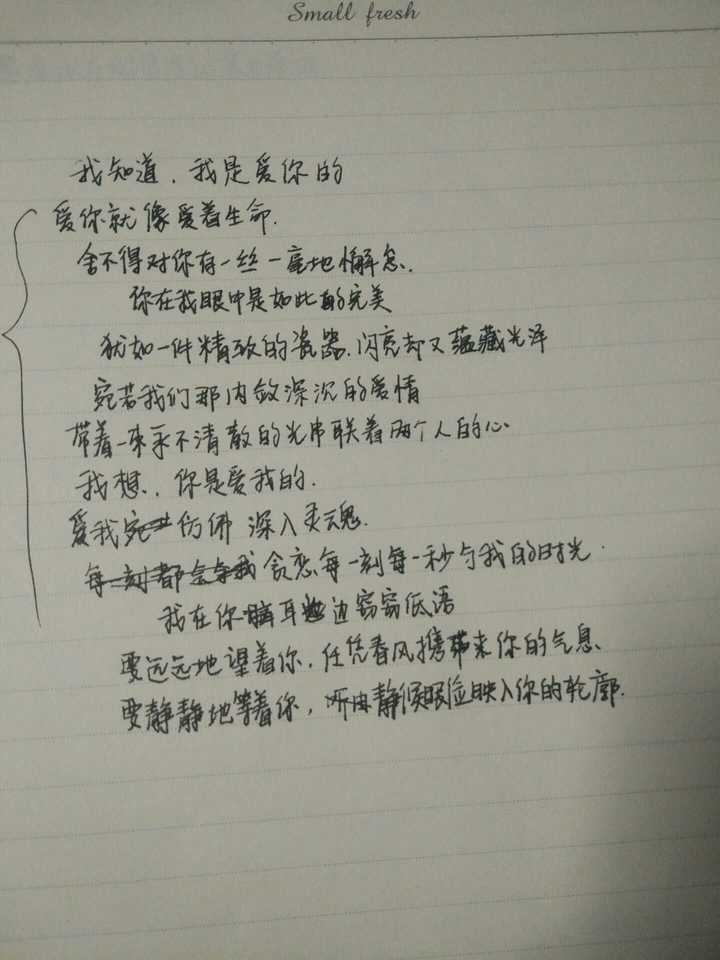 Small fresh
我知道，我是爱你的
爱你就像爱着生命.
舍不得对你有一丝一毫地懈怠.
你在我眼中是如此的完美
犹如一件精致的瓷器.闪亮却又蕴藏光泽
宛若我们那内敛深沉的爱情
带着一束永不消散的光串联着两个人的心
我想，你是爱我的.
爱我宛 仿佛 深入灵魂.
每一刻都 我贪恋每一刻每一秒与我的时光.
我在你 耳 边窃窃低语
要远远地望着你，任凭春风携带来你的气息.
要静静地等着你， 静候眼 映入你的轮廓.